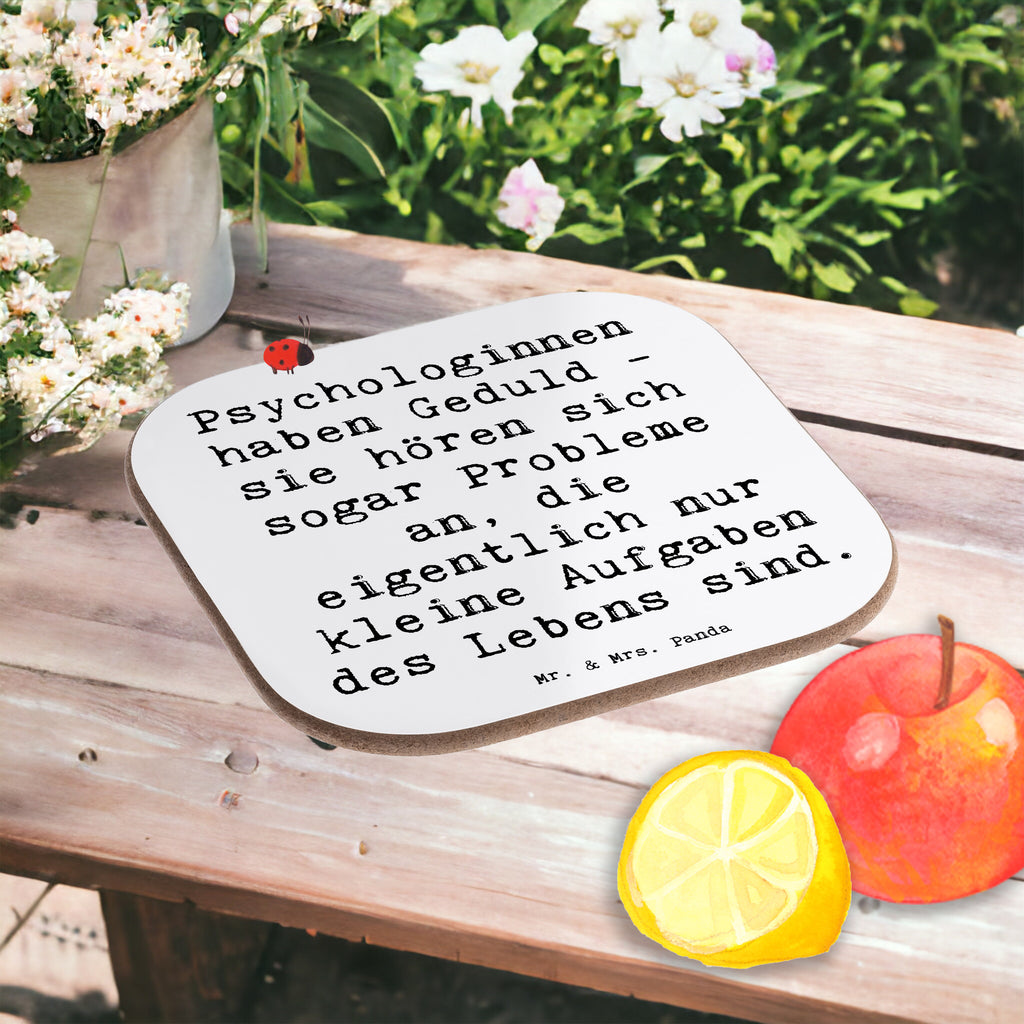 Psychologinnen
haben Geduld –
sie hören sich
sogar Probleme
an, die
eigentlich nur
kleine Aufgaben
des Lebens sind.
Mr. & Mrs. Panda